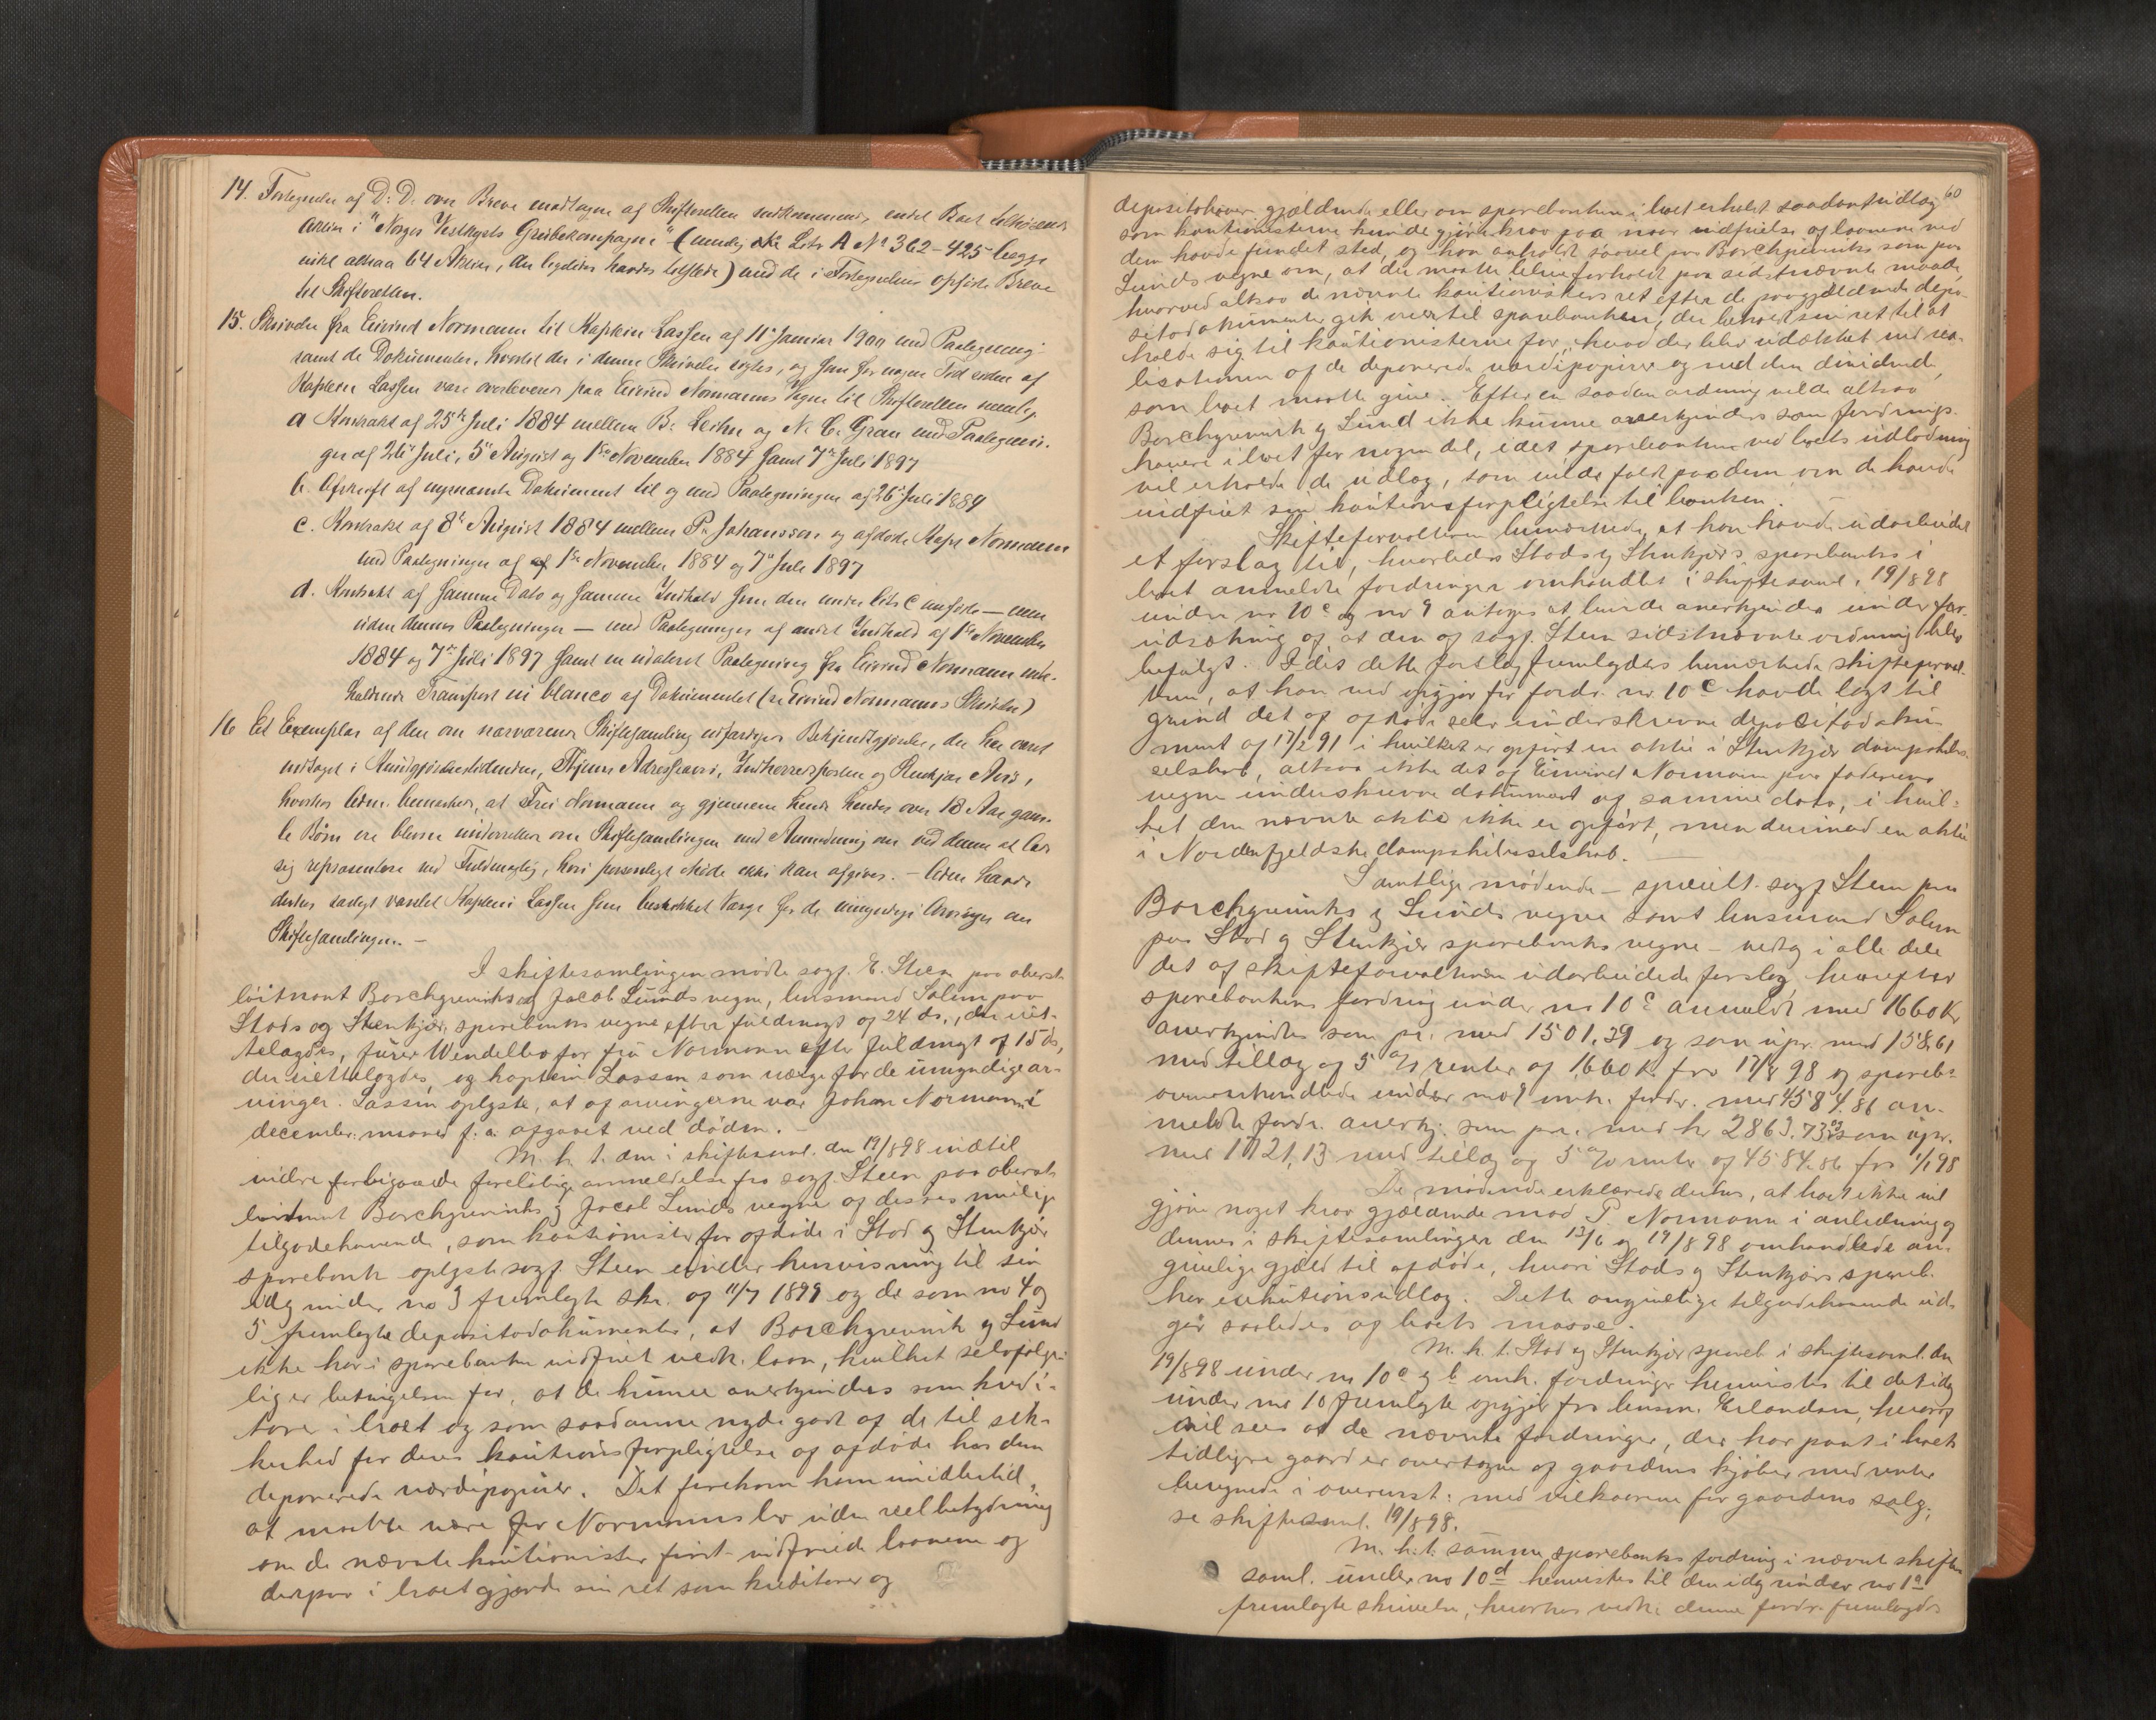 14. Fortegnelse af D: D. over Breve modtagne af Skifteretten vedkommende endel Boet tilhørende
Aktier i "Norges Vestkysts Grubekompagni" (nemlig Litr A No 362–425 begge
inkl altsaa 64 Aktier, der ligeledes havdes tilstede) med de i Fortegnelsen opførte Breve
til Skifteretten.
15. Skrivelse fra Eivind Normann til Kaptein Lassen af 11te Januar 1900 med Paategning
samt de Dokumenter, hvortil der i denne Skrivelse sigtes, og som for nogen Tid siden af
Kaptein Lassen vare overleverede paa Eivind Normanns Vegne til Skifteretten nemlig
a Kontrakt af 25de Juli 1884 mellem B. Leihn og N. C. Gran med Paategnin-
ger af 26de Juli, 5te August og 1ste November 1884 samt 7de Juli 1897
b. Afskrift af nysnævnte Dokument til og med Paategningen af 26de Juli 1884
c. Kontrakt af 8de August 1884 mellem P. Johansson og afdøde Kapt Normann
med Paategninger af 1ste November 1884 og 7de Juli 1897
d. Kontrakt af samme Dato og samme Indhold som den under Litr c anførte — men
uden dennes Paategninger — med Paategninger af andet Indhold af 1ste November
1884 og 7de Juli 1897 samt en udateret Paategning fra Eivind Normann inde-
holdende Transport in blanco af Dokumentet (se Eivind Normanns Skrivelse)
16 Et Exemplar af den om nærværende Skiftesamling udfærdigede Bekjendtgjørelse, der har været
indtaget i Kundgjørelsestidenden, Thjems Adresseavis, Indherredsposten og Stenkjær Avis,
hvorhos Adm. bemærkede, at Fru Normann og gjennem hende hendes over 18 Aar gam-
le Børn ere blevne underrettede om Skiftesamlingen med Anmodning om ved denne at lade
sig repræsentere ved Fuldmægtig, hvis personligt Møde ikke kan afgives. – Adm havde
derhos varslet Kaptein Lassen som beskikket Værge for de umyndige Arvinger om
Skiftesamlingen. –
I skiftesamlingen mødte sagf. E. Steen paa oberst-
løitnant Borchgrevinks og Jacob Lunds vegne, lensmand Solem paa
Stods og Stenkjærs sparebanks vegne efter fuldmagt af 24 ds., der vet-
telagdes, furer Wendelbo for fru Normann efter fuldmagt af 15 ds,
der vettelagdes, og kaptein Lassen som værge for de umyndige ar-
vinger. Lassen oplyste, at af arvingerne var Johan Normann i
december maaned f. a. afgaaet ved døden. –
M. h. t. den i skiftesaml. den 19/8 98 indtil
videre forbigaaede foreløbige anmeldelse fra sagf. Steen paa oberst-
løitnant Borchgrevinks og Jacob Lunds vegne af disses mulige
tilgodehavende, som kautionister for afdøde i Stod og Stenkjær
sparebank oplyste sagf. Steen under henvisning til sin
idag under no 3 fremlagte skr. af 11/7 1899 og de som no 4 og
5 fremlagte depositodokumenter, at Borchgrevink og Lund
ikke har i sparebanken indfriet vedk. laan, hvilket selvfølge-
lig er betingelsen for, at de kunne anerkjendes som kredi-
torer i boet og som saadanne nyde godt af de til sik-
kerhed for deres kautionsforpligtelse af afdøde hos dem
deponerede værdipapirer. Det forekom ham imidlertid,
at maatte være for Normanns bo uden reel betydning
om de nævnte kautionister først indfriede laanene og
derpaa i boet gjorde sin ret som kreditorer og
60
depositohavere gjældende eller om sparebanken i boet erholdt saadant udlæg
som kautionisterne kunde gjøre krav paa naar indfrielse af laanene ved
dem havde fundet sted, og han anholdt saavel paa Borchgrevinks som paa
Lunds vegne om, at der maatte blive forholdt paa sidstnævnte maade,
hvorved altsaa de nævnte kautionisters ret efter de paagjældende depo-
sitodokumenter gik over til sparebanken, der beholdt sin ret til at
holde sig til kautionisterne for, hvad der blev udækket ved rea-
lisationen af de deponerede værdipapirer og ved den dividende,
som boet maatte give. Efter en saadan ordning vilde altsaa
Borchgrevink og Lund ikke kunne anerkjendes som fordrings-
havere i boet for nogen del, idet sparebanken ved boets udlodning
vil erholde de udlæg, som vilde faldt paa dem om de havde
indfriet sin kautionsforpligtelse til banken. –
Skifteforvalteren bemærkede, at han havde udarbeidet
et forslag til, hvorledes Stods og Stenkjærs sparebanks i
boet anmeldte fordringer omhandlet i skiftesaml. 19/8 98
under no 10c og no 9 antages at burde anerkjendes under for-
udsætning af at den af sagf. Steen sidstnævnte ordning blev
befulgt. Idet dette forslag fremlagdes bemærkede skifteforval-
teren, at han ved opgjør for fordr. no 10c havde lagt til
grund det af afdøde selv underskrevne depositodoku-
ment af 17/2 91 i hvilket er opført en aktie i Stenkjær dampskibs-
selskab, altsaa ikke det af Eivind Normann paa faderens
vegne underskrevne dokument af samme dato, i hvil-
ket den nævnte aktie ikke er opført, men derimod en aktie
i Nordenfjeldske dampskibsselskab. –
Samtlige mødende – specielt sagf Steen paa
Borchgrevinks og Lunds vegne samt lensmand Solem
paa Stod og Stenkjær sparebanks vegne – vedtog i alle dele
det af skifteforvalteren udarbeidede forslag, hvorefter
sparebankens fordring under no 10c anmeldt med 1660 Kr
anerkjendtes som pr. med 1501,39 og som upr. med 158,61
med tillæg af 5 % renter af 1660 K. fra 17/8 98 og spareb.
ovenomhandlede under no 9 omh. fordr. med 4584.86 an-
meldte fordr. anerkj. som pr. med kr 2863.73 og som upr.
med 1721,13 med tillæg af 5 % rente af 4584.86 fra 1/1 98
De mødende erklærede derhos, at boet ikke vil
gjøre noget krav gjældende mod P. Normann i anledning af
dennes i skiftesamlingen den 13/6 og 19/8 98 omhandlede an-
givelige gjæld til afdøde, hvori Stods og Stenkjærs spareb.
har exekutionsudlæg. Dette angivelige tilgodehavende ud-
gaar saaledes af boets masse.
M. h. t. Stod og Stenkjær spareb. i skiftesaml. den
19/8 98 under no 10a og b omh. fordringer henvistes til det idag
under no 10 fremlagte opgjør fra lensm. Erlandsen, hvoraf
vil sees at de nævnte fordringer, der har pant i boets
tidligere gaard er overtagne af gaardens kjøber med renter
beregnede i overensst. med vilkaarene for gaardens salg;
se skiftesaml. 19/8 98.
M. h. t. samme sparebanks fordring i nævnt skifte-
saml. under no 10d henvistes til den idag under no 1a
fremlagte skrivelse, hvorhos vedk. denne fordr. fremlagdes